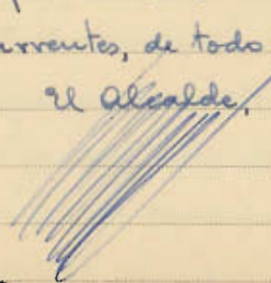 rrentes, de todo
El Alcalde,